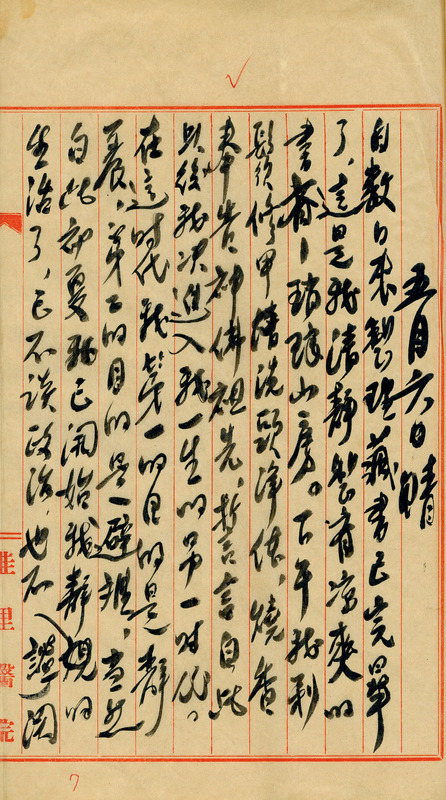 五月六日 晴
自數日來整理藏書已完畢
了,這是我清靜整齊涼爽的
書齋—琅琅山房。下午我剃
鬍鬚修甲清洗頭淨体,燒香
奉告神佛祖先,誓言自此
以後我決進入我一生的另一時代。
在這時代我第一的目的是靜
養,第二的目的是避難,當然
自此初夏我已開始我靜觀的
生活了,已不談政治,也不講閑
佳里醫院
7